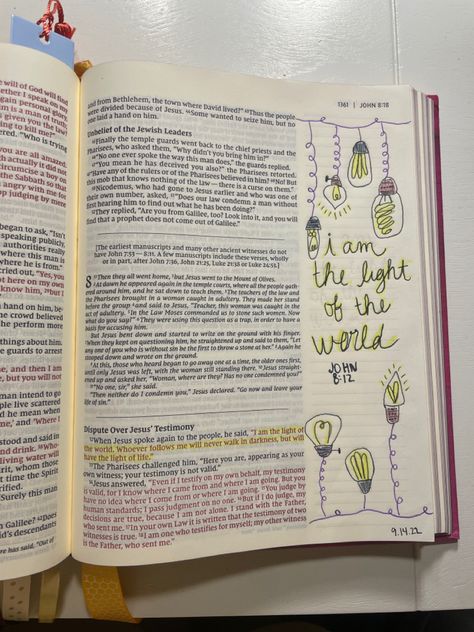 will of God will find
1361 | JOHN 8:18
and from Bethlehem, the town where David lived?” ⁴³Thus the people
were divided because of Jesus. ⁴⁴Some wanted to seize him, but no
one laid a hand on him.
Unbelief of the Jewish Leaders
⁴⁵Finally the temple guards went back to the chief priests and the
Pharisees, who asked them, “Why didn’t you bring him in?”
⁴⁶“No one ever spoke the way this man does,” the guards replied.
⁴⁷“You mean he has deceived you also?” the Pharisees retorted.
⁴⁸“Have any of the rulers or of the Pharisees believed in him? ⁴⁹No! But
this mob that knows nothing of the law — there is a curse on them.”
⁵⁰Nicodemus, who had gone to Jesus earlier and who was one of
their own number, asked, ⁵¹“Does our law condemn a man without
first hearing him to find out what he has been doing?”
⁵²They replied, “Are you from Galilee, too? Look into it, and you will
find that a prophet does not come out of Galilee.”
[The earliest manuscripts and many other ancient witnesses do not
have John 7:53 — 8:11. A few manuscripts include these verses, wholly
or in part, after John 7:36, John 21:25, Luke 21:38 or Luke 24:53.]
8 ⁵³Then they all went home, ¹but Jesus went to the Mount of Olives.
²At dawn he appeared again in the temple courts, where all the people gath-
ered around him, and he sat down to teach them. ³The teachers of the law and
the Pharisees brought in a woman caught in adultery. They made her stand
before the group ⁴and said to Jesus, “Teacher, this woman was caught in the
act of adultery. ⁵In the Law Moses commanded us to stone such women. Now
what do you say?” ⁶They were using this question as a trap, in order to have a
basis for accusing him.
But Jesus bent down and started to write on the ground with his finger.
⁷When they kept on questioning him, he straightened up and said to them, “Let
any one of you who is without sin be the first to throw a stone at her.” ⁸Again he
stooped down and wrote on the ground.
⁹At this, those who heard began to go away one at a time, the older ones first,
until only Jesus was left, with the woman still standing there. ¹⁰Jesus straight-
ened up and asked her, “Woman, where are they? Has no one condemned you?”
¹¹“No one, sir,” she said.
“Then neither do I condemn you,” Jesus declared. “Go now and leave your
life of sin.”
Dispute Over Jesus’ Testimony
¹²When Jesus spoke again to the people, he said, “I am the light of
the world. Whoever follows me will never walk in darkness, but will
have the light of life.”
¹³The Pharisees challenged him, “Here you are, appearing as your
own witness; your testimony is not valid.”
¹⁴Jesus answered, “Even if I testify on my own behalf, my testimony
is valid, for I know where I came from and where I am going. But you
have no idea where I come from or where I am going. ¹⁵You judge by
human standards; I pass judgment on no one. ¹⁶But if I do judge, my
decisions are true, because I am not alone. I stand with the Father,
who sent me. ¹⁷In your own Law it is written that the testimony of two
witnesses is true. ¹⁸I am one who testifies for myself; my other witness
is the Father, who sent me.”
i am
the light
of the
world
JOHN
8:12
9.14.22